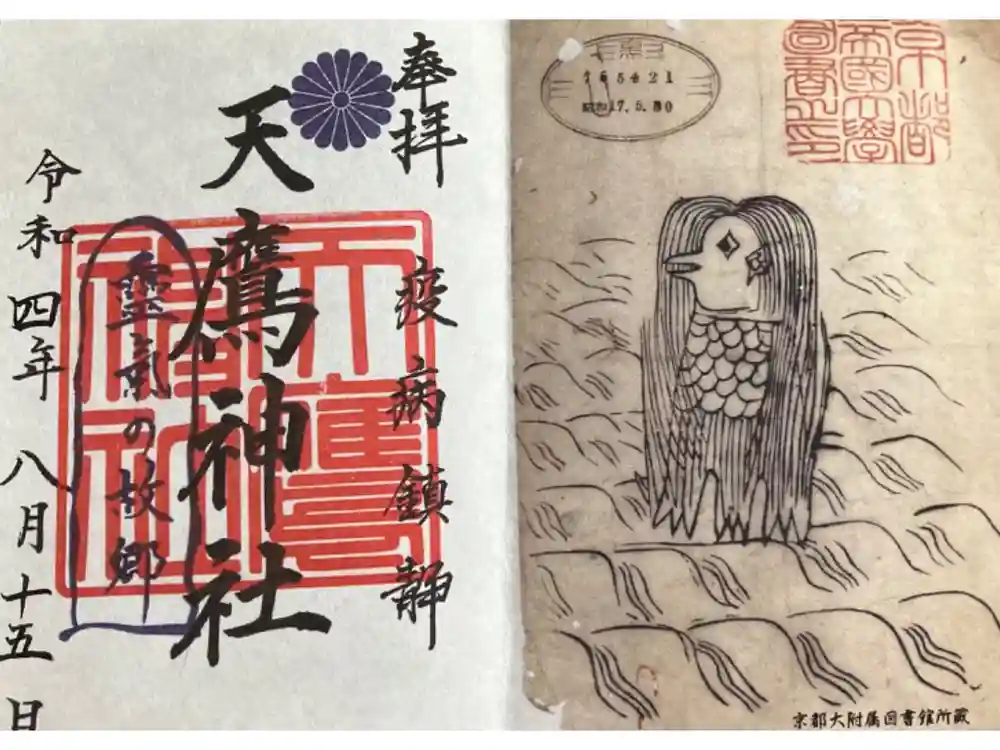 奉拝
疫病鎮静
天鷹神社
天鷹神社
靈氣の故郷
令和四年八月十五日
165421
昭和17.5.30
京都
帝國大學
圖書之印
京都大附属図書館所蔵